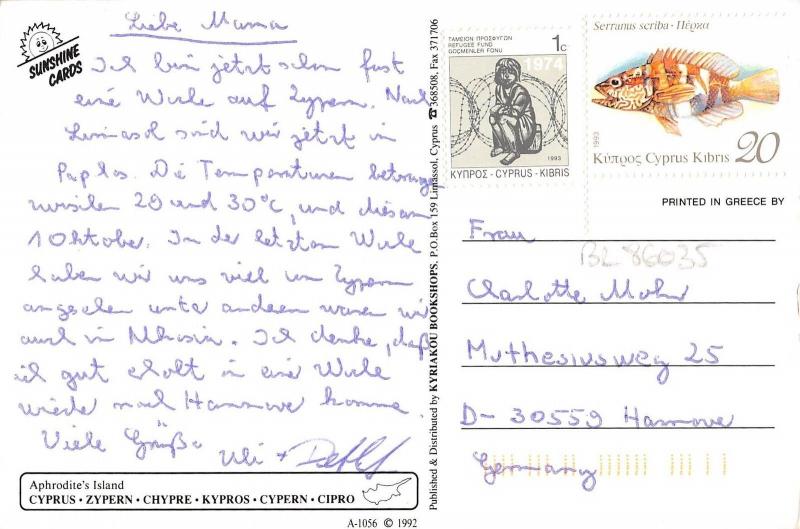 Liebe Mama
Ich bin jetzt schon fast
eine Woche auf Zypern. Nach
Limassol sind wir jetzt in
Paphos. Die Temperaturen betragen
zwischen 20 und 30°C, und dies am
1 Oktober. In der letzten Woche
haben wir uns viel in Zypern
angesehen unter anderem waren wir
auch in Nikosia. Ich denke, daß
ich gut erholt in eine Woche
wieder nach Hannover komme.
Viele Grüße
Uli +
SUNSHINE
CARDS
Aphrodite's Island
CYPRUS · ZYPERN · CHYPRE · KYPROS · CYPERN · CIPRO
A-1056 © 1992
Published & Distributed by KYRIAKOU BOOKSHOPS. P.O.Box 159 Limassol, Cyprus ☎ 368508, Fax 371706
ΤΑΜΕΙΟΝ ΠΡΟΣΦΥΓΩΝ
REFUGEE FUND
GÖÇMENLER FONU
1c
1974
1993
ΚΥΠΡΟΣ - CYPRUS - KIBRIS
Serranus scriba - Πέρκα
1993
Κύπρος Cyprus Kibris 20
PRINTED IN GREECE BY
Frau
BL 86035
Charlotte Mohr
Muthesiusweg 25
D- 30559 Hannover
Germany